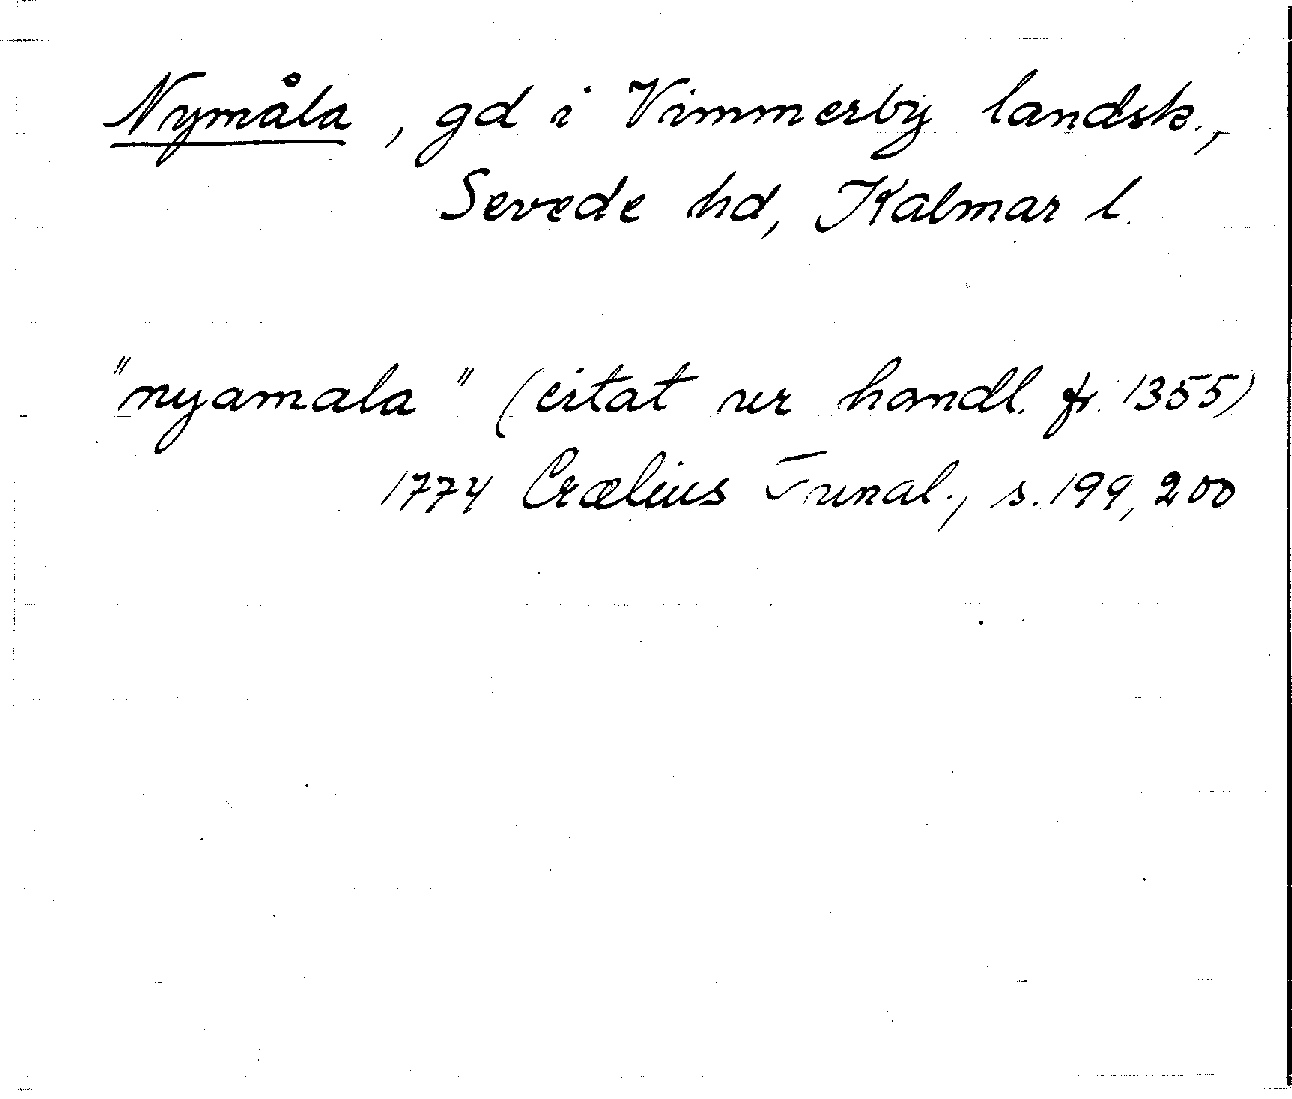 Nymåla, gd i Vimmerby landsk.,
Sevede hd, Kalmar l.
"nyamala" (citat ur handl. fr. 1355)
1774 Crælius Tunal., s. 199, 200